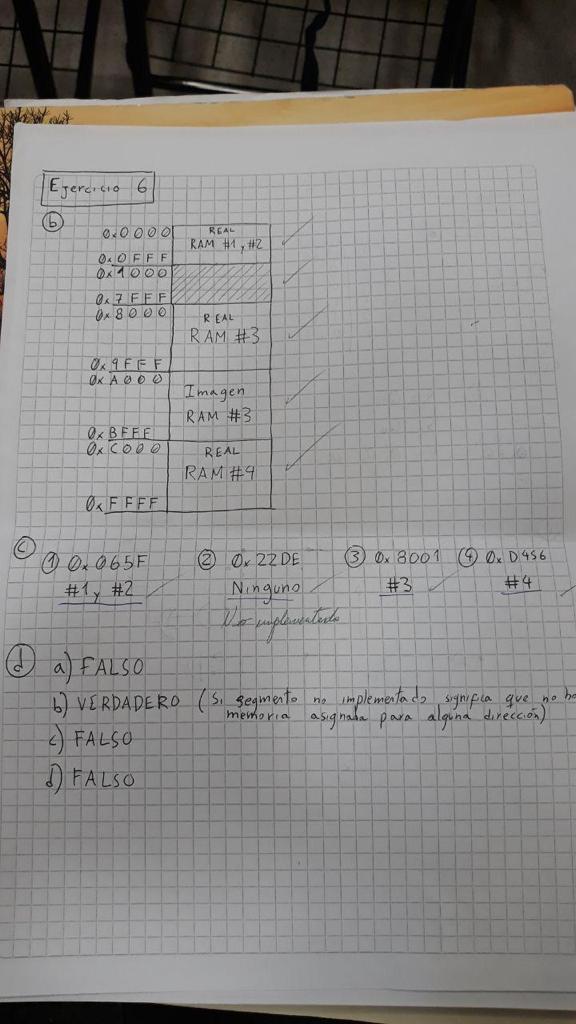 Ejercicio 6
b
0x0000 REAL
RAM #1 y #2
0x0FFF
0x1000
0x7FFF
0x8000 REAL
RAM #3
0x9FFF
0xA000 Imagen
RAM #3
0xBFFF
0xC000 REAL
RAM #4
0xFFFF
c 1 0x065F 2 0x22DE 3 0x8001 4 0xD456
#1 y #2 Ninguno #3 #4
No implementado
d a) FALSO
b) VERDADERO (Si segmento no implementado significa que no
memoria asignada para alguna dirección)
c) FALSO
d) FALSO